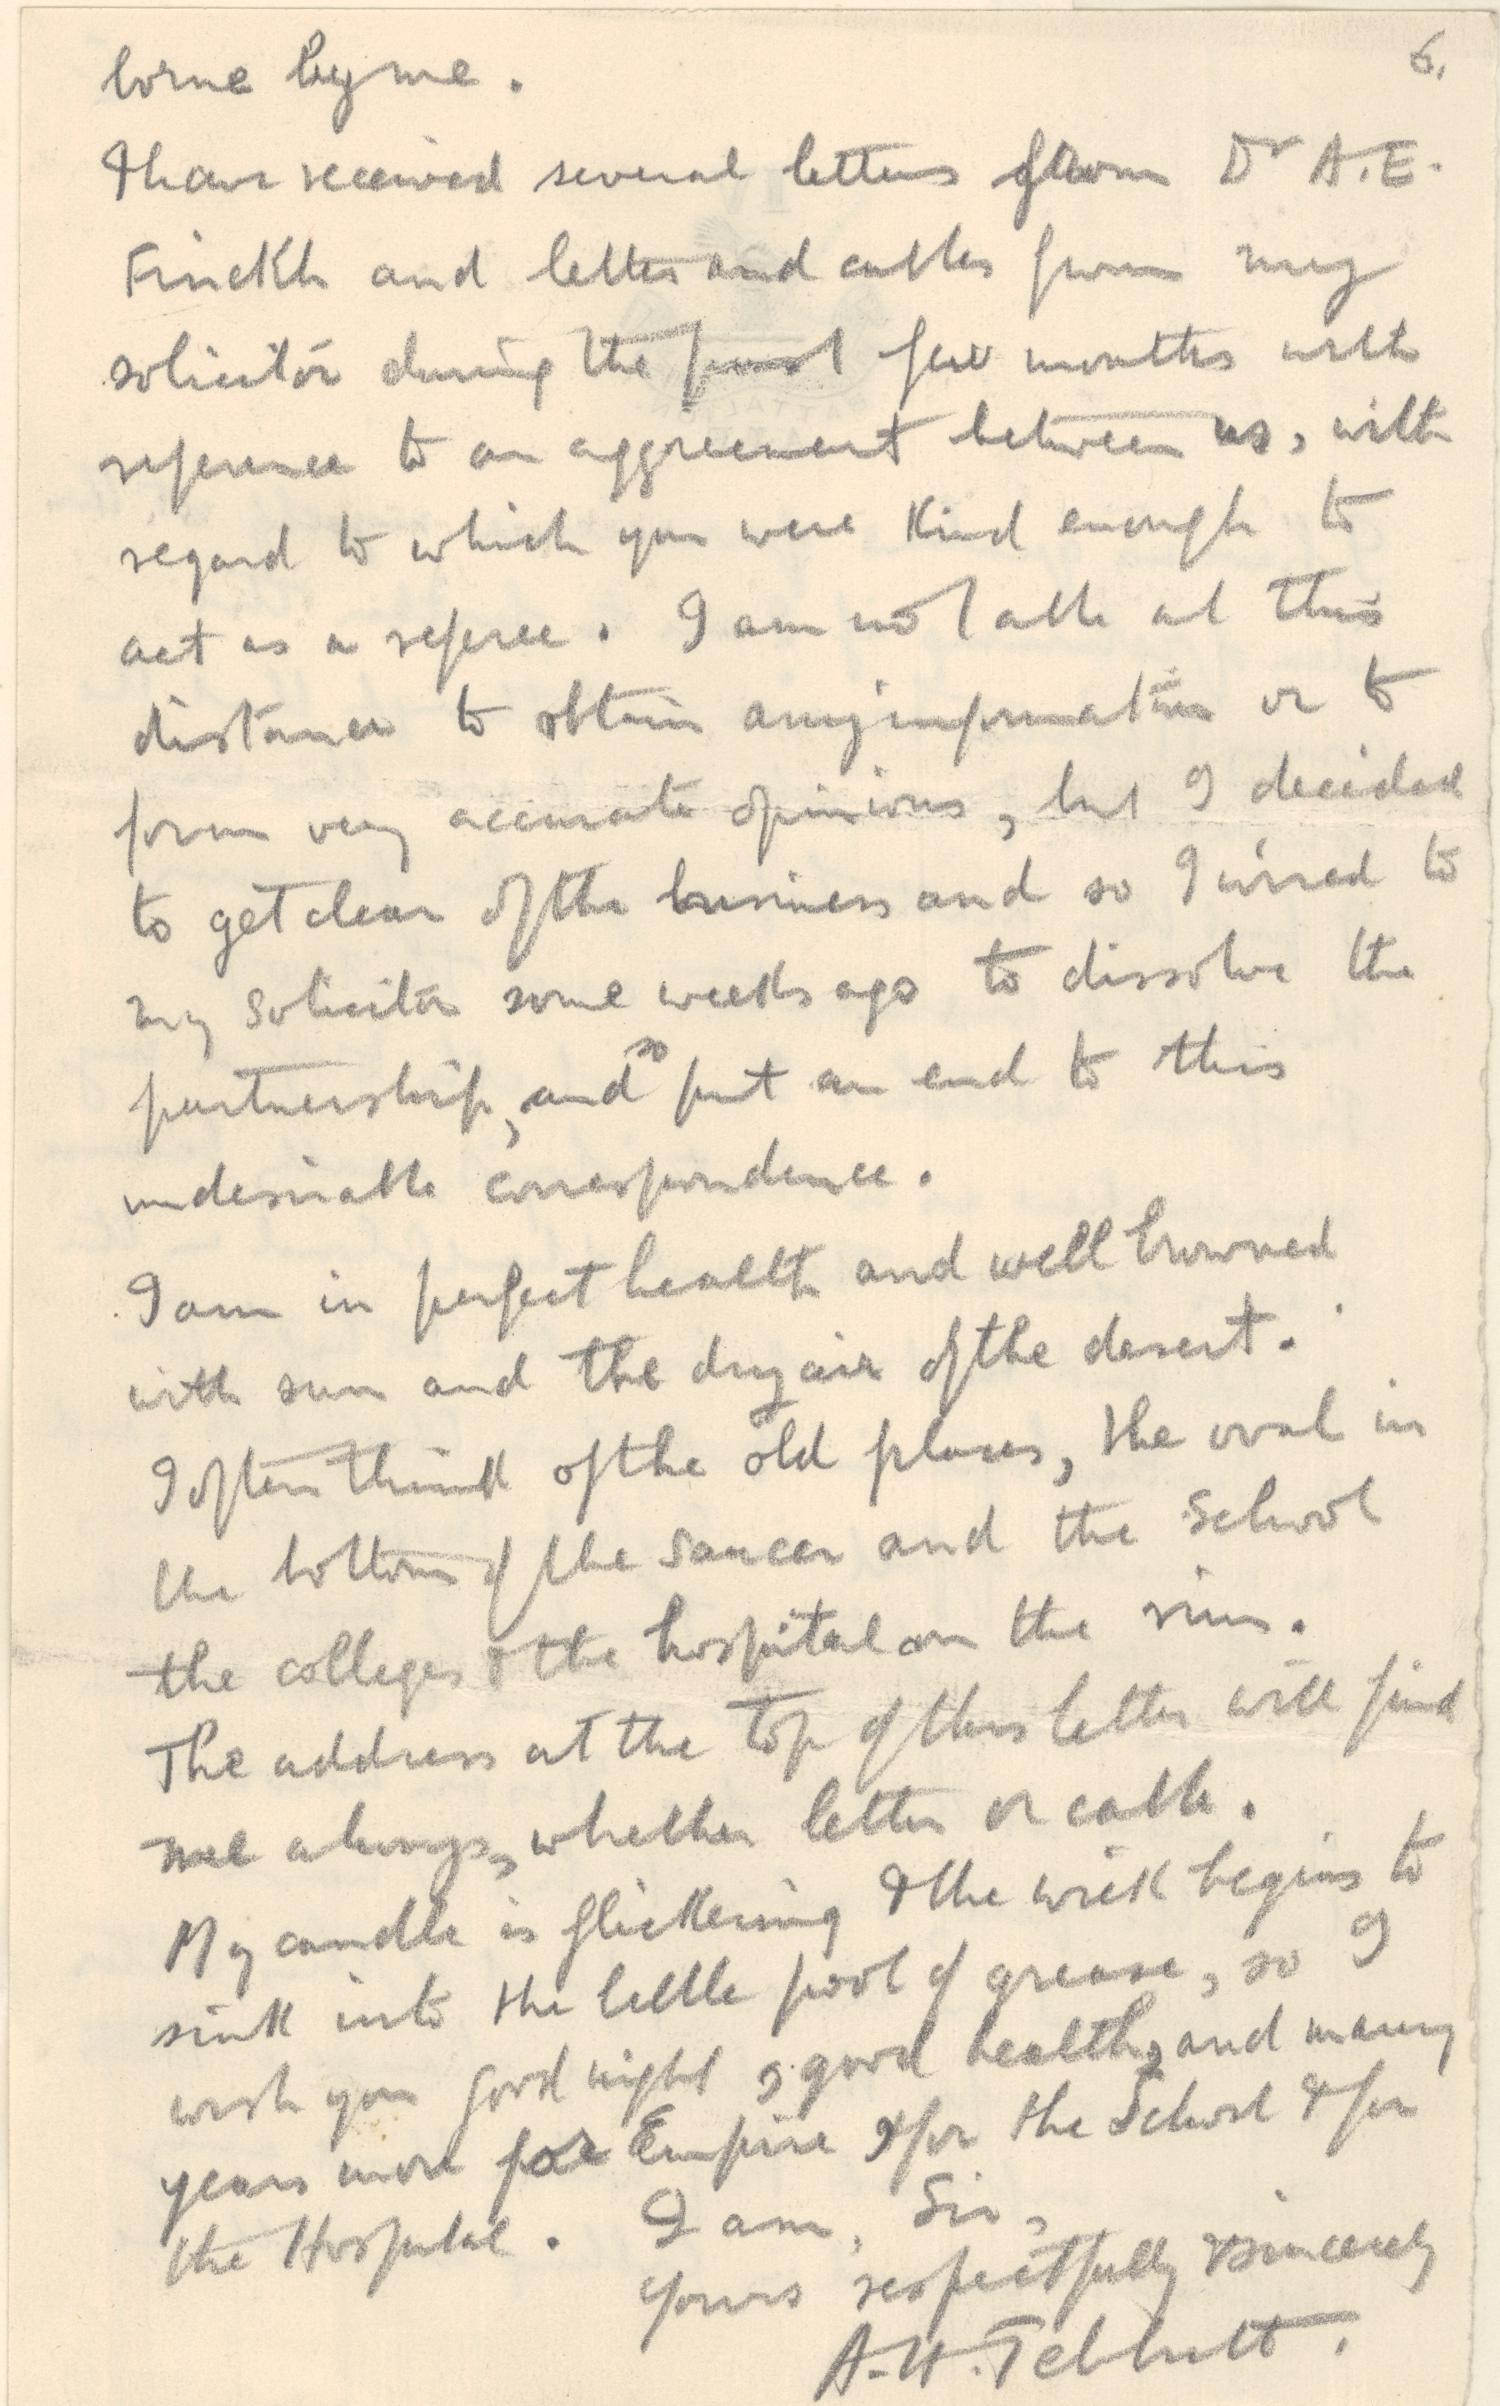 6.
borne by me.
I have received several letters from Dr A.E.
Finckh and letter and cables from my
solicitor during the past few months with
reference to an aggreement between us, with
regard to which you were kind enough to
act as a referee. I am not able at this
distance to obtain any information or to
form very accurate opinions, but I decided
to get clear of the business and so I wired to
my solicitor some weeks ago to dissolve the
partnership, and so put an end to this
undesirable correspondence.
I am in perfect health and well browned
with sun and the dry air of the desert.
I often think of the old places, the oval in
the bottom of the saucer and the School
the colleges & the hospital on the rim.
The address at the top of this letter will find
me always, whether letter or cable.
My candle is flickering & the wick begins to
sink into the little pool of grease, so I
wish you good night & good health, and many
years more for Empire & for the School & for
the Hospital. I am, Sir,
Yours respectfully & sincerely
A.H. Tebbutt.